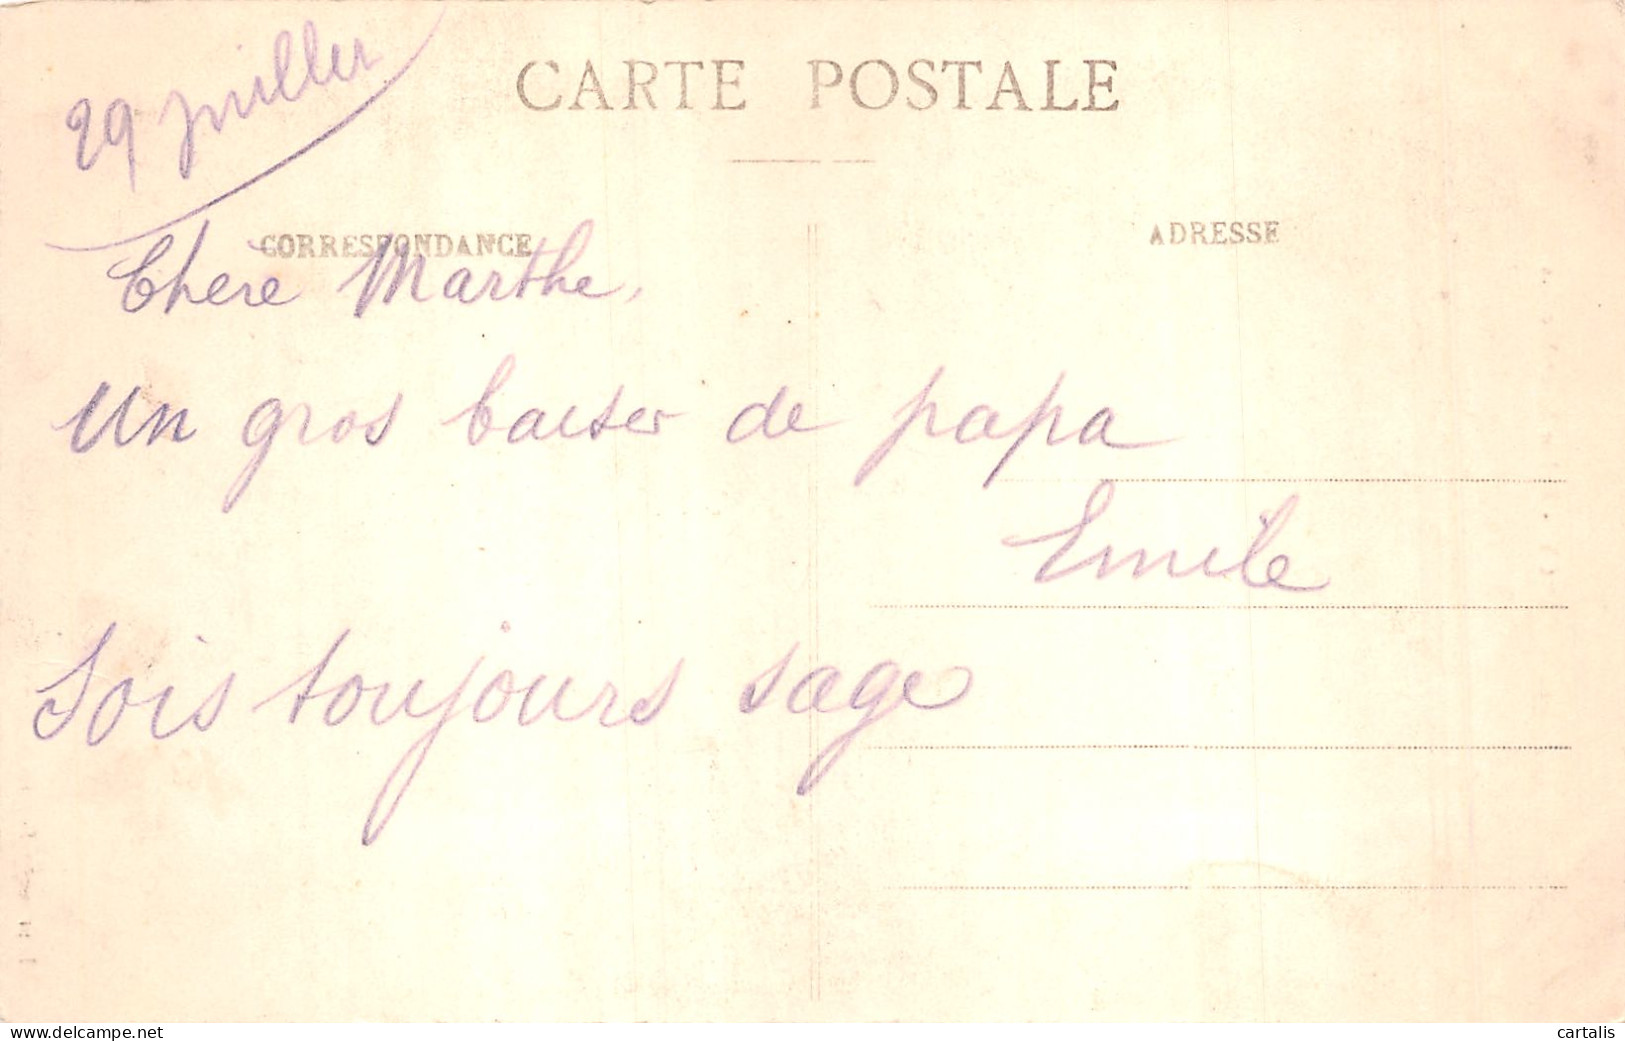 29 juillet
CARTE POSTALE
CORRESPONDANCE
ADRESSE
Chere Marthe,
un gros baiser de papa
Emile
Sois toujours sage
www.delcampe.net
cartalis